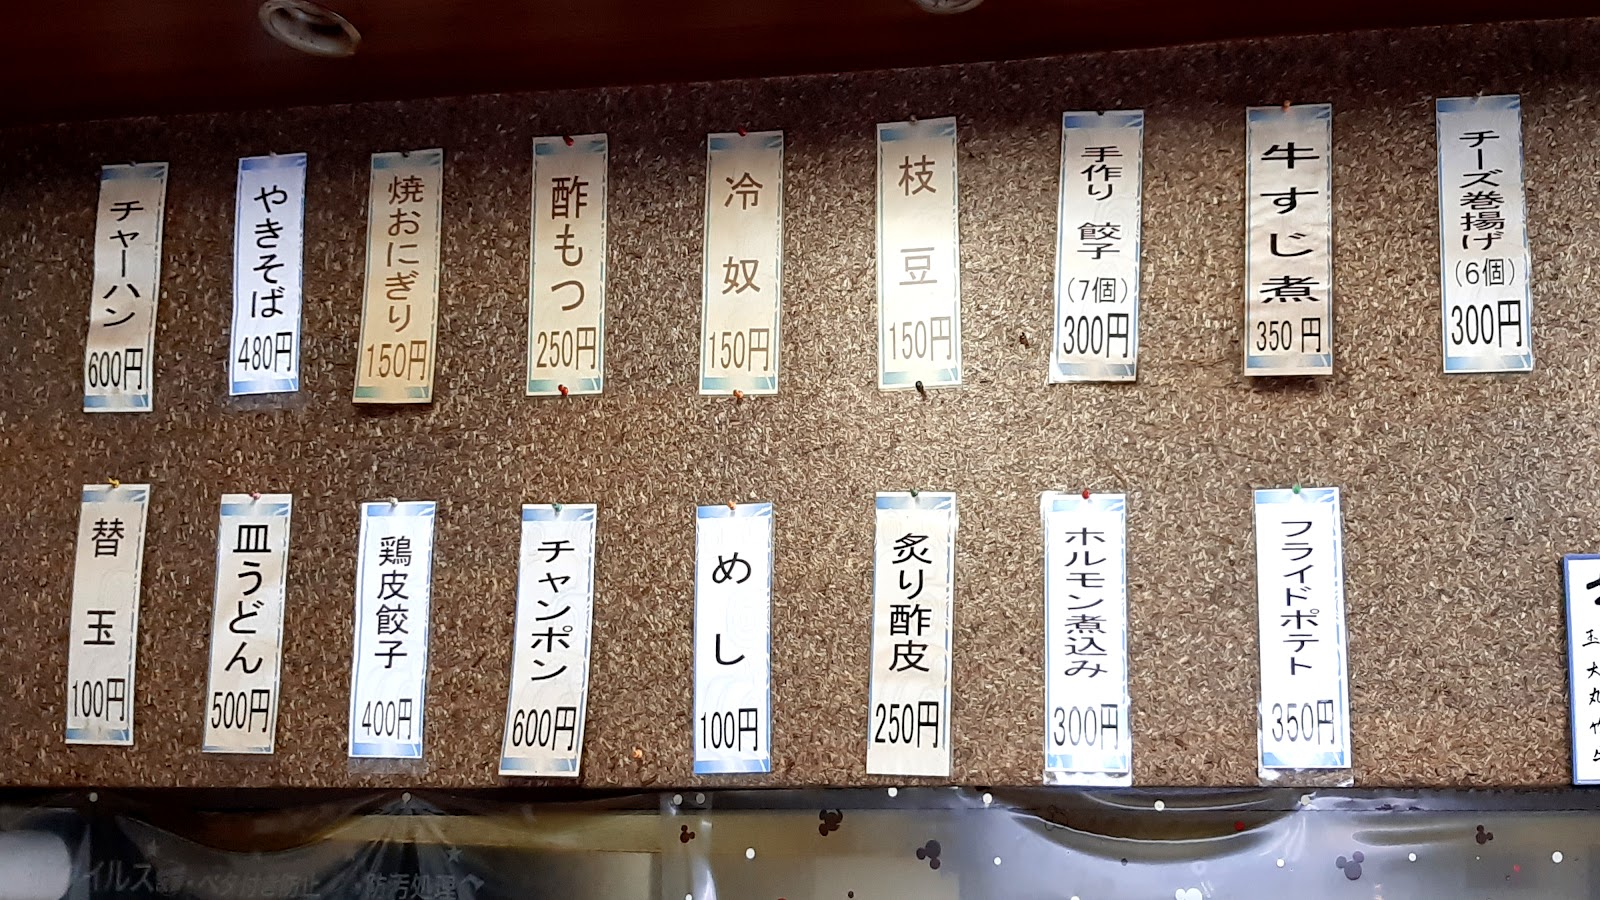 チャーハン
600円
やきそば
480円
焼おにぎり
150円
酢もつ
250円
冷奴
150円
枝豆
150円
手作り 餃子
(7個)
300円
牛すじ煮
350円
チーズ巻揚げ
(6個)
300円
替玉
100円
皿うどん
500円
鶏皮餃子
400円
チャンポン
600円
めし
100円
炙り酢皮
250円
ホルモン煮込み
300円
フライドポテト
350円
イルス
ベタ付き防止
・防汚処理